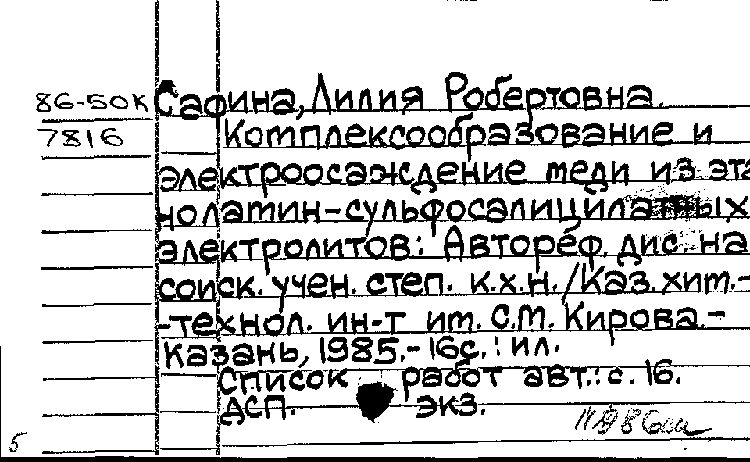 86-50К Сафина, Лилия Робертовна.
7816 Комплексообразование и
электроосаждение меди из эта
ноламин-сульфосалицилатных
электролитов: Автореф. дис. на
соиск. учен. степ. к.х.н./Каз.хим.-
-технол. ин-т им. С.М. Кирова.-
Казань, 1985.-16с.: ил.
Список работ авт.: с. 16.
ДСП. экз.
5